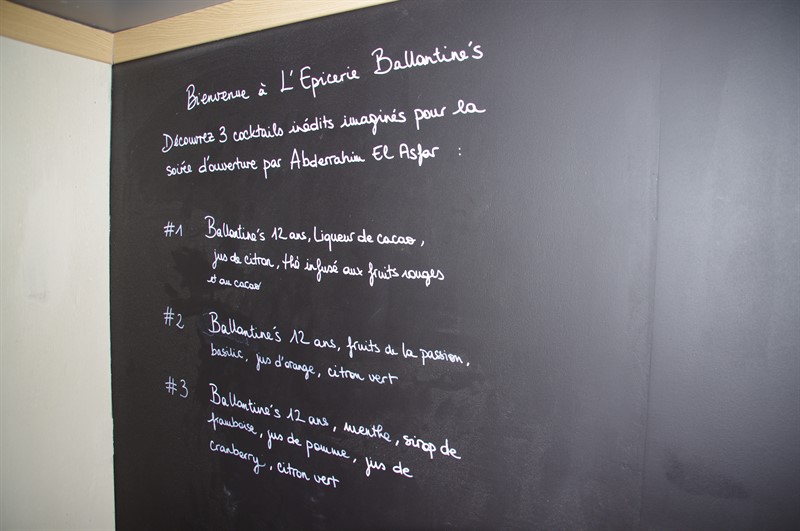 Bienvenue à L'Epicerie Ballantine's
Découvrez 3 cocktails inédits imaginés pour la
soirée d'ouverture par Abderrahim El Asfar :
#1 Ballantine's 12 ans, Liqueur de cacao,
jus de citron, thé infusé aux fruits rouges
et au cacao
#2 Ballantine's 12 ans, fruits de la passion,
basilic, jus d'orange, citron vert
#3 Ballantine's 12 ans, menthe, sirop de
framboise, jus de pomme, jus de
cranberry, citron vert